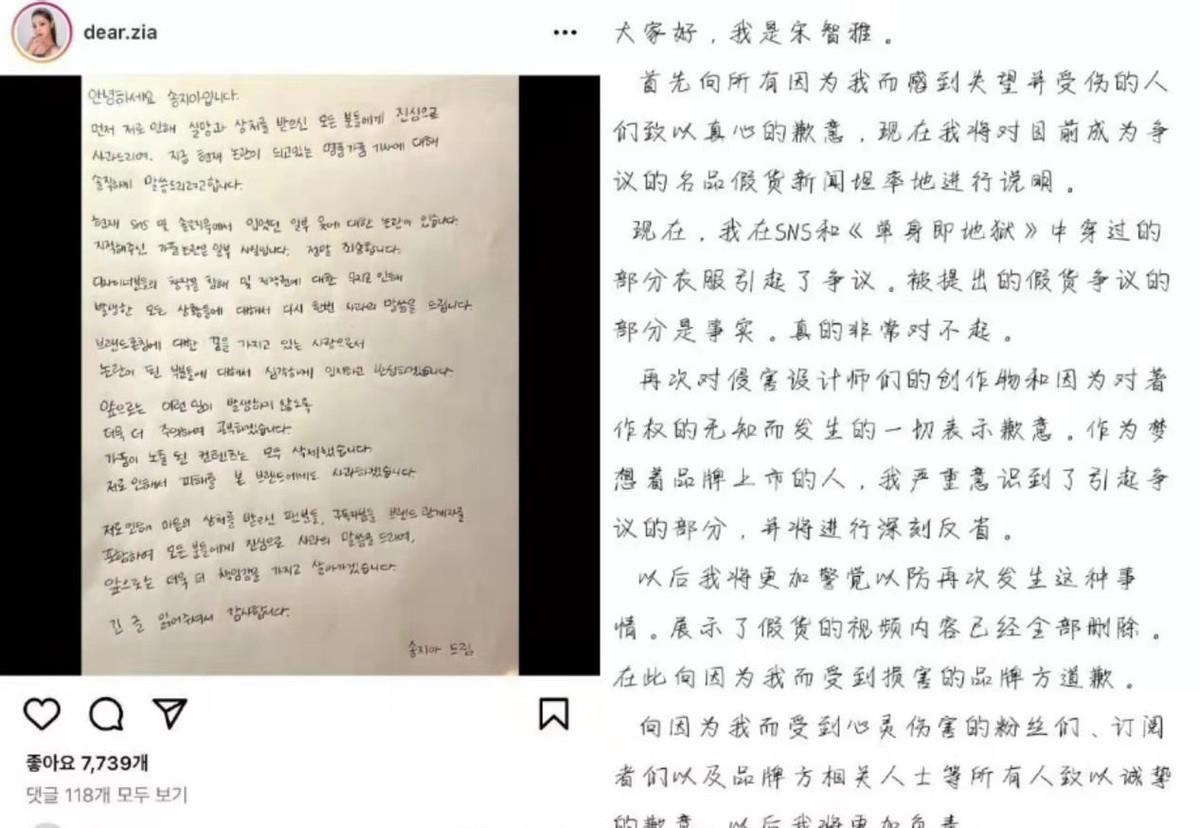 dear.zia
안녕하세요 송지아입니다.
먼저 저로 인해 실망과 상처를 받으신 모든 분들에게 진심으로
사과드리며, 지금 현재 논란이 되고있는 명품가품 기사에 대해
솔직하게 말씀드리려고합니다.
현재 SNS 및 솔로지옥에서 입었던 일부 옷에 대한 논란이 있습니다.
지적해주신 가품논란은 일부 사실입니다. 정말 죄송합니다.
디자이너분들의 창작물 침해 및 저작권에 대한 무지로 인해
발생한 모든 상황들에 대해서 다시 한번 사과의 말씀을 드립니다.
브랜드론칭에 대한 꿈을 가지고 있는 사람으로서
논란이 된 부분들에 대해서 심각하게 인지하고 반성하겠습니다.
앞으로는 이런 일이 발생하지 않도록
더욱 더 주의하며 공부하겠습니다.
가품이 노출 된 컨텐츠는 모두 삭제했습니다.
저로인해서 피해를 본 브랜드에게도 사과하겠습니다.
저로인해 마음의 상처를 받으신 팬분들, 구독자님들 브랜드 관계자를
포함하여 모든 분들에게 진심으로 사과의 말씀을 드리며,
앞으로는 더욱 더 책임감을 가지고 살아가겠습니다.
긴 글 읽어주셔서 감사합니다.
송지아 드림
좋아요 7,739개
댓글 118개 모두 보기
大家好，我是宋智雅。
首先向所有因为我而感到失望并受伤的人
们致以真心的歉意，现在我将对目前成为争
议的名品假货新闻坦率地进行说明。
现在，我在SNS和《单身即地狱》中穿过的
部分衣服引起了争议。被提出的假货争议的
部分是事实。真的非常对不起。
再次对侵害设计师们的创作物和因为对著
作权的无知而发生的一切表示歉意。作为梦
想着品牌上市的人，我严重意识到了引起争
议的部分，并将进行深刻反省。
以后我将更加警觉以防再次发生这种事
情。展示了假货的视频内容已经全部删除。
在此向因为我而受到损害的品牌方道歉。
向因为我而受到心灵伤害的粉丝们、订阅
者们以及品牌方相关人士等所有人致以诚挚
的歉意，以后我将更加负责